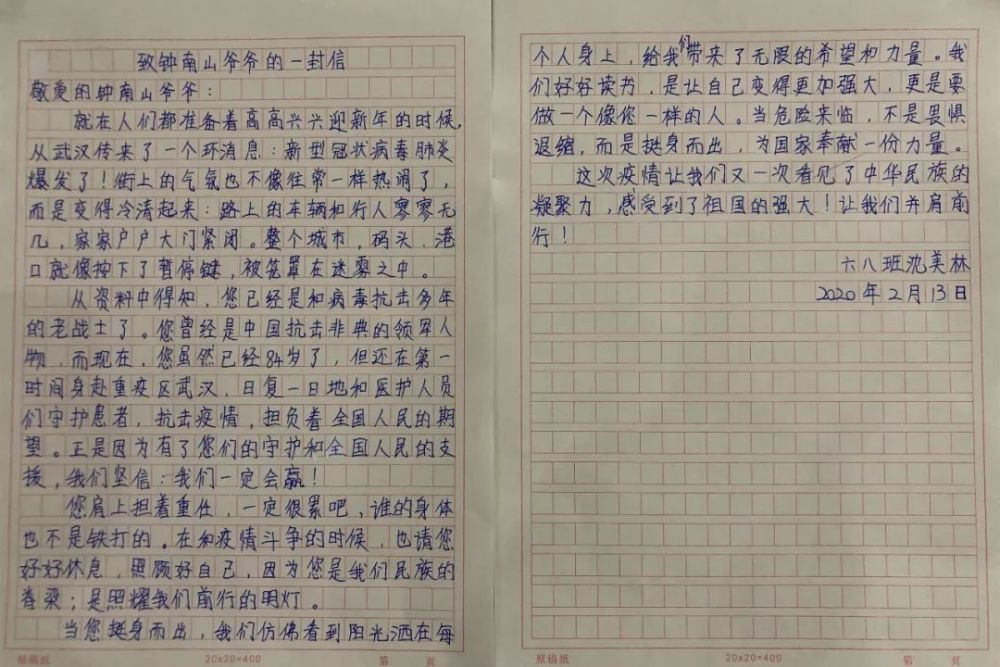 致钟南山爷爷的一封信
敬爱的钟南山爷爷：
就在人们都准备着高高兴兴迎新年的时候，
从武汉传来了一个环消息：新型冠状病毒肺炎
爆发了！街上的气氛也不像往常一样热闹了，
而是变得冷清起来：路上的车辆和行人寥寥无
几，家家户户大门紧闭。整个城市，码头、港
口就像按下了暂停键，被笼罩在迷雾之中。
从资料中得知，您已经是和病毒抗击多年
的老战士了。您曾经是中国抗击非典的领军人
物，而现在，您虽然已经84岁了，但还在第一
时间身赴重疫区武汉，日复一日地和医护人员
们守护患者，抗击疫情，担负着全国人民的期
望。正是因为有了您们的守护和全国人民的支
援，我们坚信：我们一定会赢！
您肩上担着重任，一定很累吧，谁的身体
也不是铁打的。在和疫情斗争的时候，也请您
好好休息，照顾好自己，因为您是我们民族的
脊梁；是照耀我们前行的明灯。
当您挺身而出，我们仿佛看到阳光洒在每
原稿纸 20×20=400 第 页
个人身上，给我们带来了无限的希望和力量。我
们好好读书，是让自己变得更加强大，更是要
做一个像您一样的人。当危险来临，不是畏惧
退缩，而是挺身而出，为国家奉献一份力量。
这次疫情让我们又一次看见了中华民族的
凝聚力，感受到了祖国的强大！让我们并肩前
行！
六八班沈美林
2020年2月13日
原稿纸 20×20=400 第 页